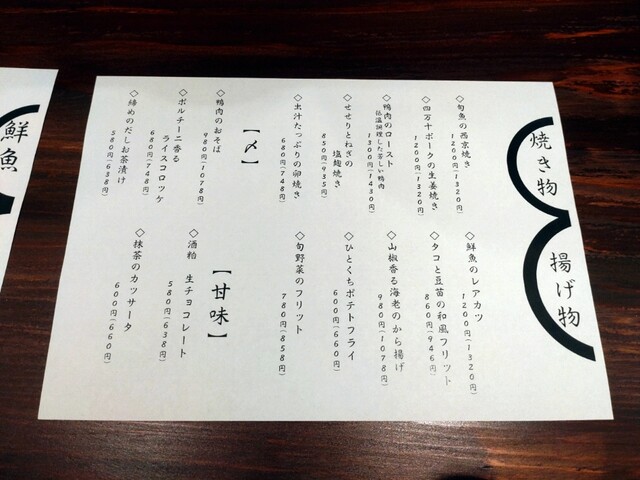 鮮魚
焼き物
◇旬魚の西京焼き
1200円(1320円)
◇四万十ポークの生姜焼き
1200円(1320円)
◇鴨肉のロースト
低温調理した芳しい鴨肉
1300円(1430円)
◇せせりとねぎの
塩麹焼き
850円(935円)
◇出汁たっぷりの卵焼き
680円(748円)
【〆】
◇鴨肉のおそば
980円(1078円)
◇ポルチーニ香る
ライスコロッケ
680円(748円)
◇締めのだしお茶漬け
580円(638円)
揚げ物
◇鮮魚のレアカツ
1200円(1320円)
◇タコと豆苗の和風フリット
860円(946円)
◇山椒香る海老のから揚げ
980円(1078円)
◇ひとくちポテトフライ
600円(660円)
◇旬野菜のフリット
780円(858円)
【甘味】
◇酒粕 生チョコレート
580円(638円)
◇抹茶のカッサータ
600円(660円)